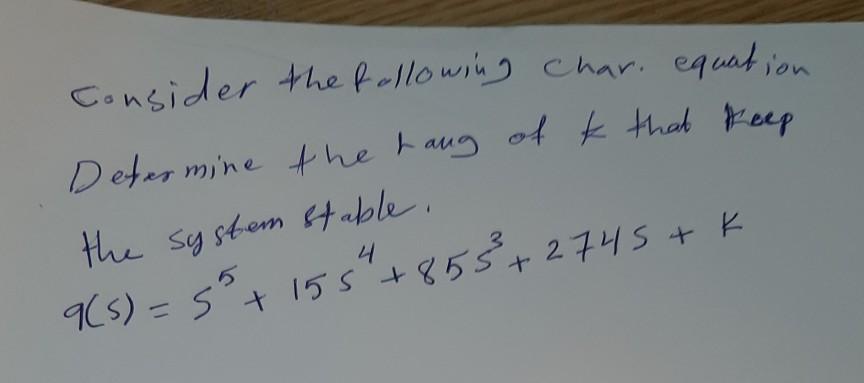 Consider the following char. equation
Determine the rang of k that keep
the system stable.
q(s) = s⁵ + 15 s⁴ + 85 s³ + 274 s + k